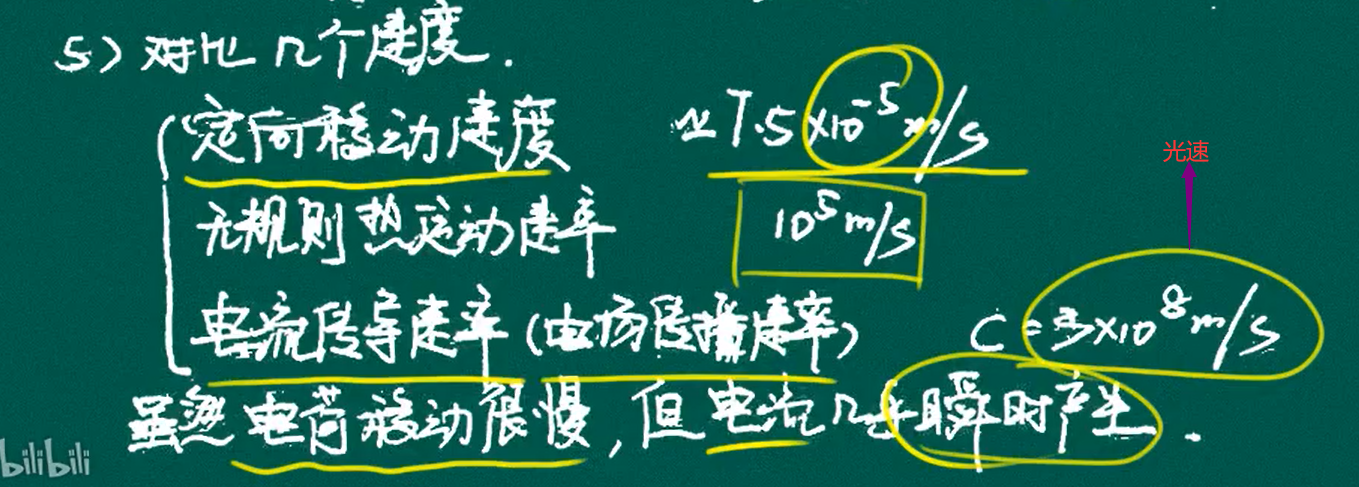 5) 对比几个速度.
定向移动速度 ≃7.5×10⁻⁵m/s
光速
无规则热运动速率 10⁵m/s
电流传导速率(电场传播速率) C=3×10⁸m/s
虽然电荷移动很慢,但电流几乎瞬时产生.
bilibili